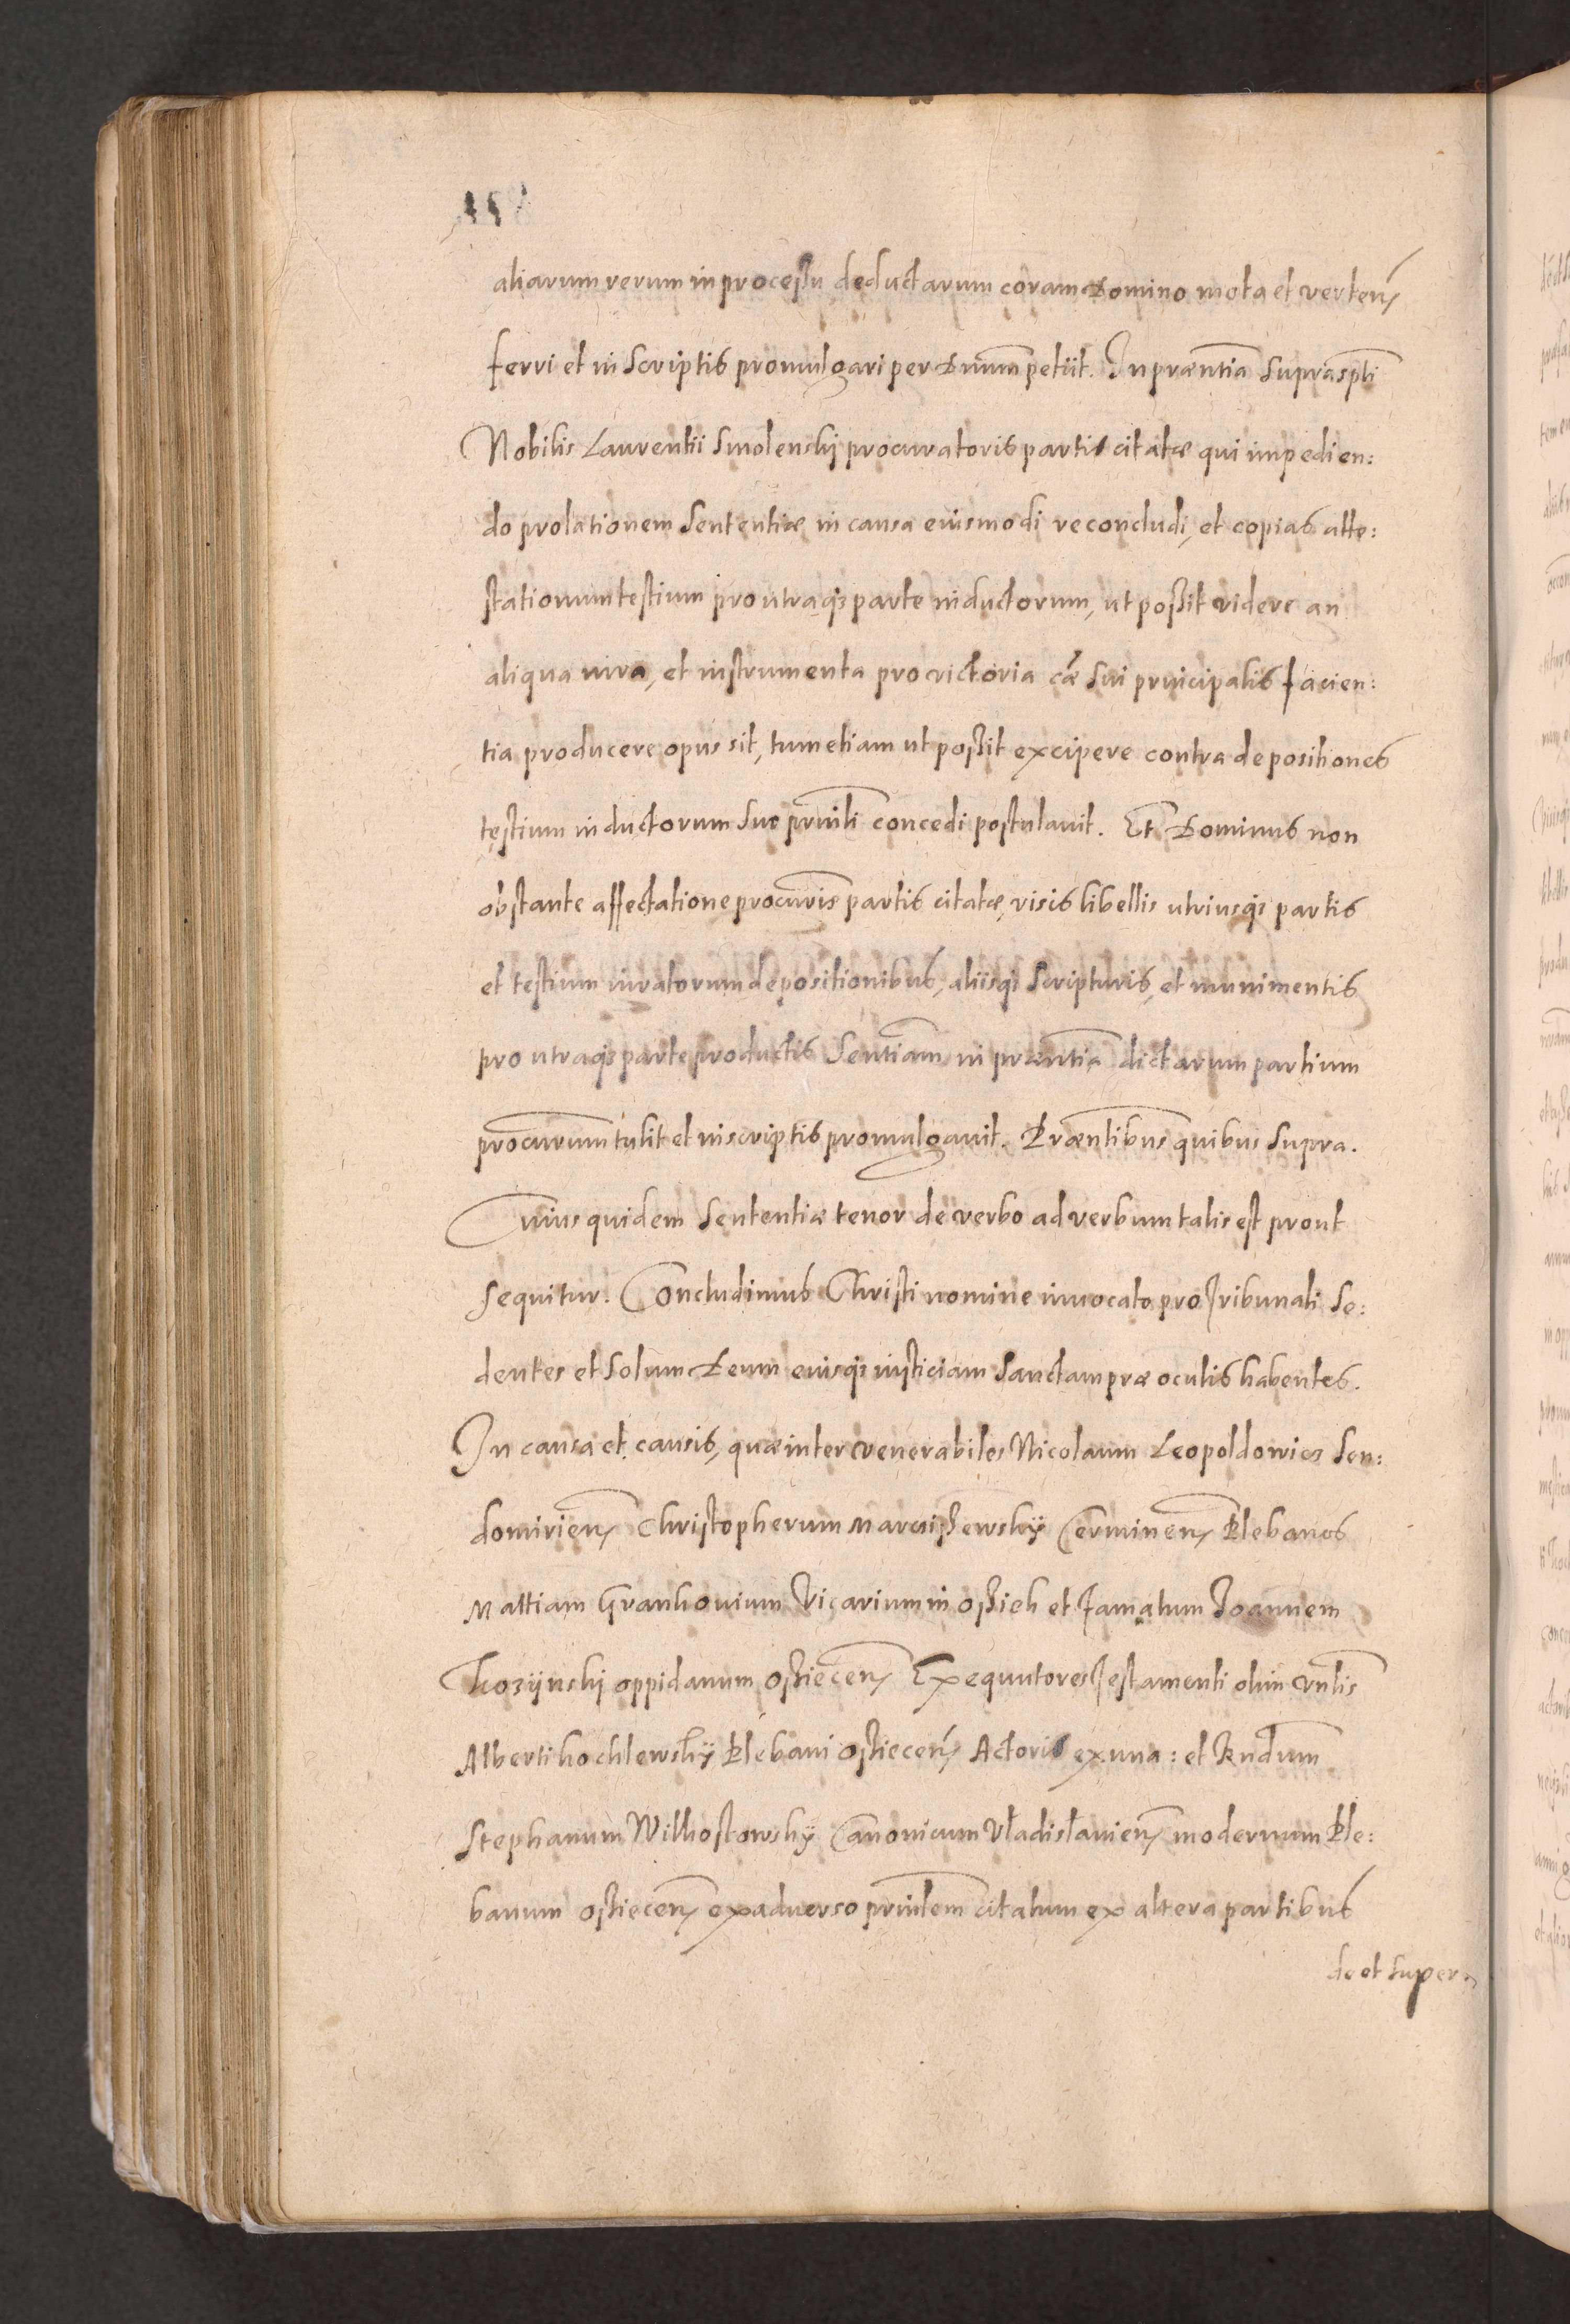 aliarum rerum in processu deductarum coram Domino mota et verten̄
ferri et in scriptis promulgari per Dnum petiit. In præntia suprascpti
Nobilis Laurentii Smolenskj procuratoris partis citatæ qui impedien:
do prolationem sententiæ in causa eiusmodi reconcludi, et copias atte:
stationum testium pro utraqз parte inductorum, ut possit videre an
aliqua iura, et instrumenta pro victoria cæ sui principalis facien:
tia producere opus sit, tum etiam ut possit excipere contra depositiones
testium inductorum suo prinli concedi postulavit. Et Dominus non
obstante affectatione procuris partis citatæ, visis libellis utriusqз partis
et testium iuratorum depositionibus, aliisqз scripturis, et munimentis
pro utraqз parte productis sentiam in præntia dictarum partium
procurum tulit et in scriptis promulgavit. Præntibus quibus supra.
Cuius quidem sententiæ tenor de verbo ad verbum talis est prout
sequitur. Concludimus Christi nomine invocato pro Tribunali se:
dentes et solum Deum eiusqз iusticiam sanctam præ oculis habentes.
In causa et causis, quæ inter venerabiles Nicolaum Leopoldowicz Sen:
domirien̄ Christopherum Marcissewskÿ Cerminen̄ Plebanos
Mattiam Grankovium Vicarium in Ossiek et Famatum Joannem
Kozÿnskj oppidanum Ossiecen̄ Exequutores Testamenti olim Vnlis
Alberti Kochlewskÿ Plebani Ossiecen̄ Actoris ex una: et Rndum
Stephanum Wilkostowskÿ Canonicum Vładisłavien̄ modernum Ple:
banum Ossiecen̄ ex adverso prinlem citatum ex altera partibus
de et super